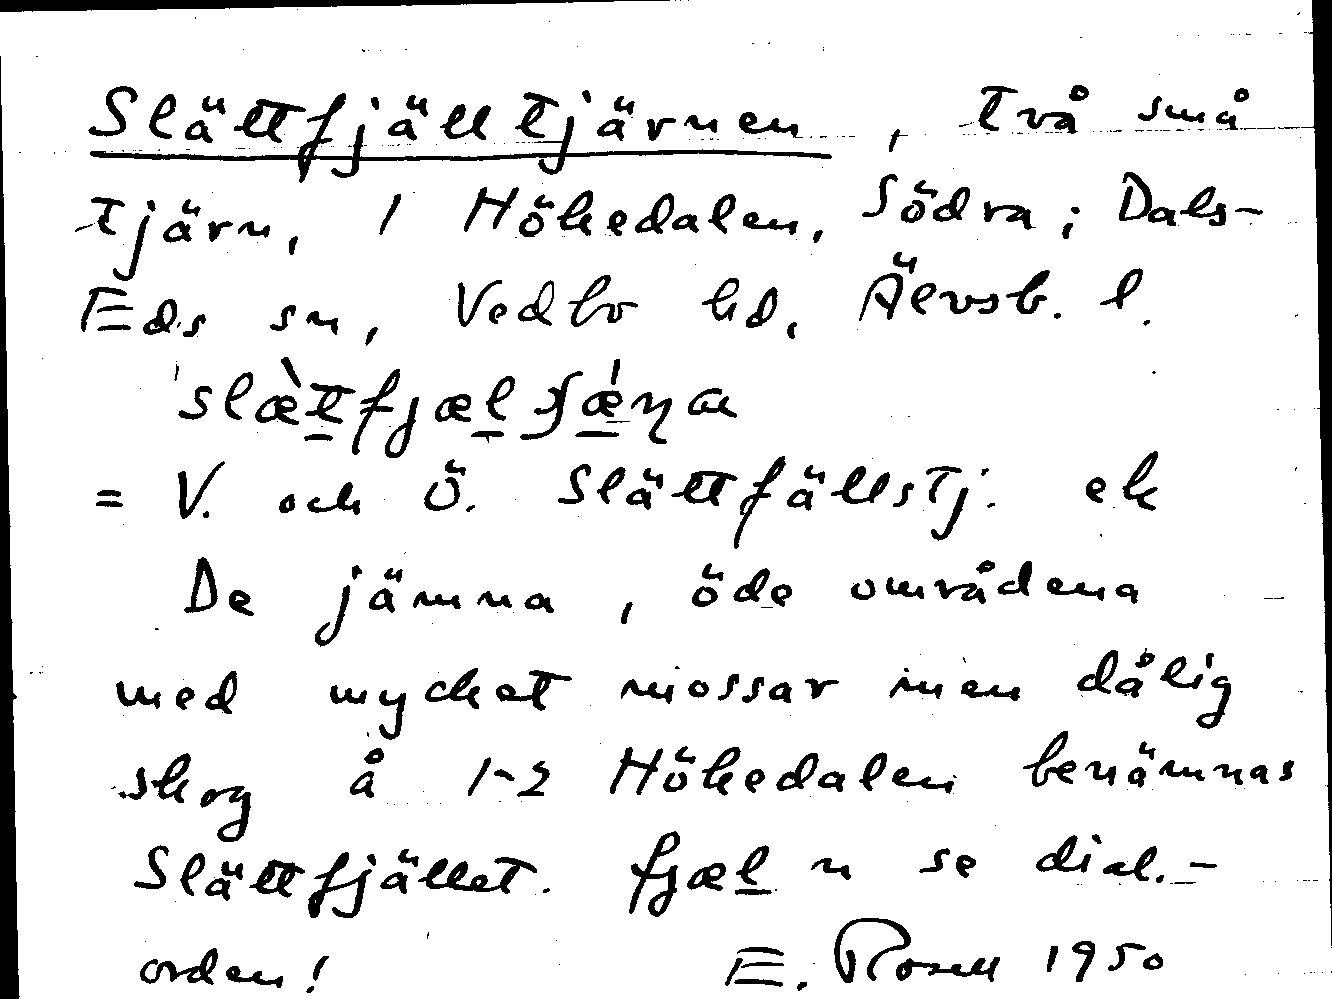 Slättfjälltjärnen, två små
tjärn, 1 Hökedalen, Södra; Dals-
Eds sn, Vedbo hd, Älvsb. l.
= V. och Ö. Slättfällstj. ek
De jämna, öde områdena
med mycket mossar men dålig
skog å 1-2 Hökedalen benämnas
Slättfjället. fjæl n se dial.-
orden! E. Rosell 1950